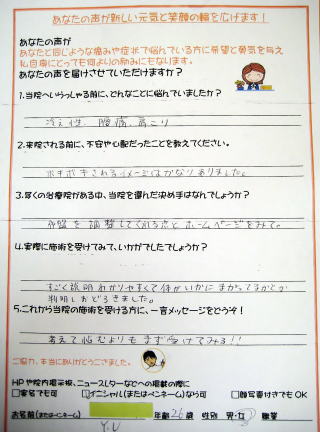 あなたの声が新しい元気と笑顔の輪を広げます！
あなたの声が
あなたと同じような痛みや症状で悩んでいる方に希望と勇気を与え
私自身にとっても何よりの励みにもなります。
あなたの声を届けさせていただけますか？
1.当院へいらっしゃる前に、どんなことに悩んでいましたか？
冷え性、腰痛、肩こり
2.来院される前に、不安や心配だったことを教えてください。
ボキボキされるイメージはかなりありました。
3.尽くの治療院がある中、当院を選んだ決め手はなんでしょうか？
骨盤を調整してくれる点とホームページをみて。
4.実際に施術を受けてみて、いかがでしたでしょうか？
すごく説明わかりやすくて体がいかにまがってるかとか
判明しおどろきました。
5.これから当院の施術を受ける方に、一言メッセージをどうぞ！
考えて悩むよりもまず受けてみる!!
ご協力、本当にありがとうございました。
HPや院内掲示板、ニュースレターなどへの掲載の際に
□実名でも可 □イニシャル(またはペンネーム)なら可 □顔写真付きでもOK
お名前(またはペンネーム) 年齢 26 歳 性別 男・女 職業
Y.U